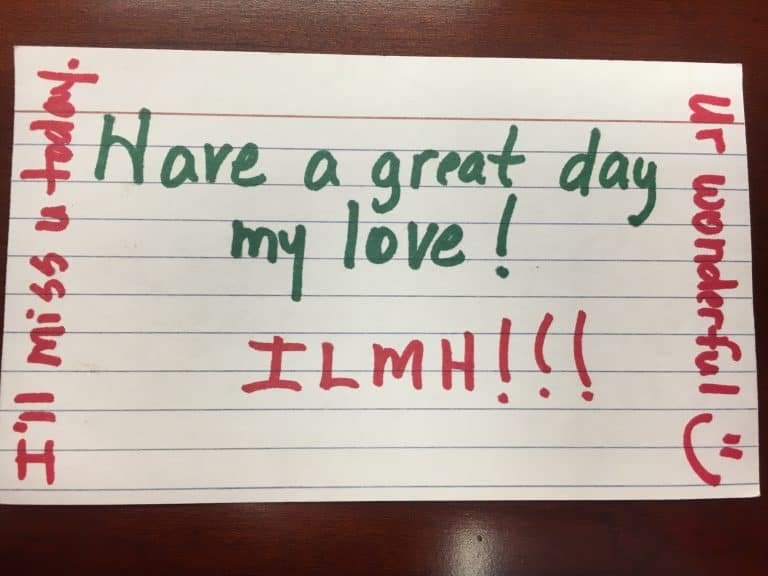 Have a great day
my love!
ILMH!!!
I'll miss u today.
Ur wonderful :)